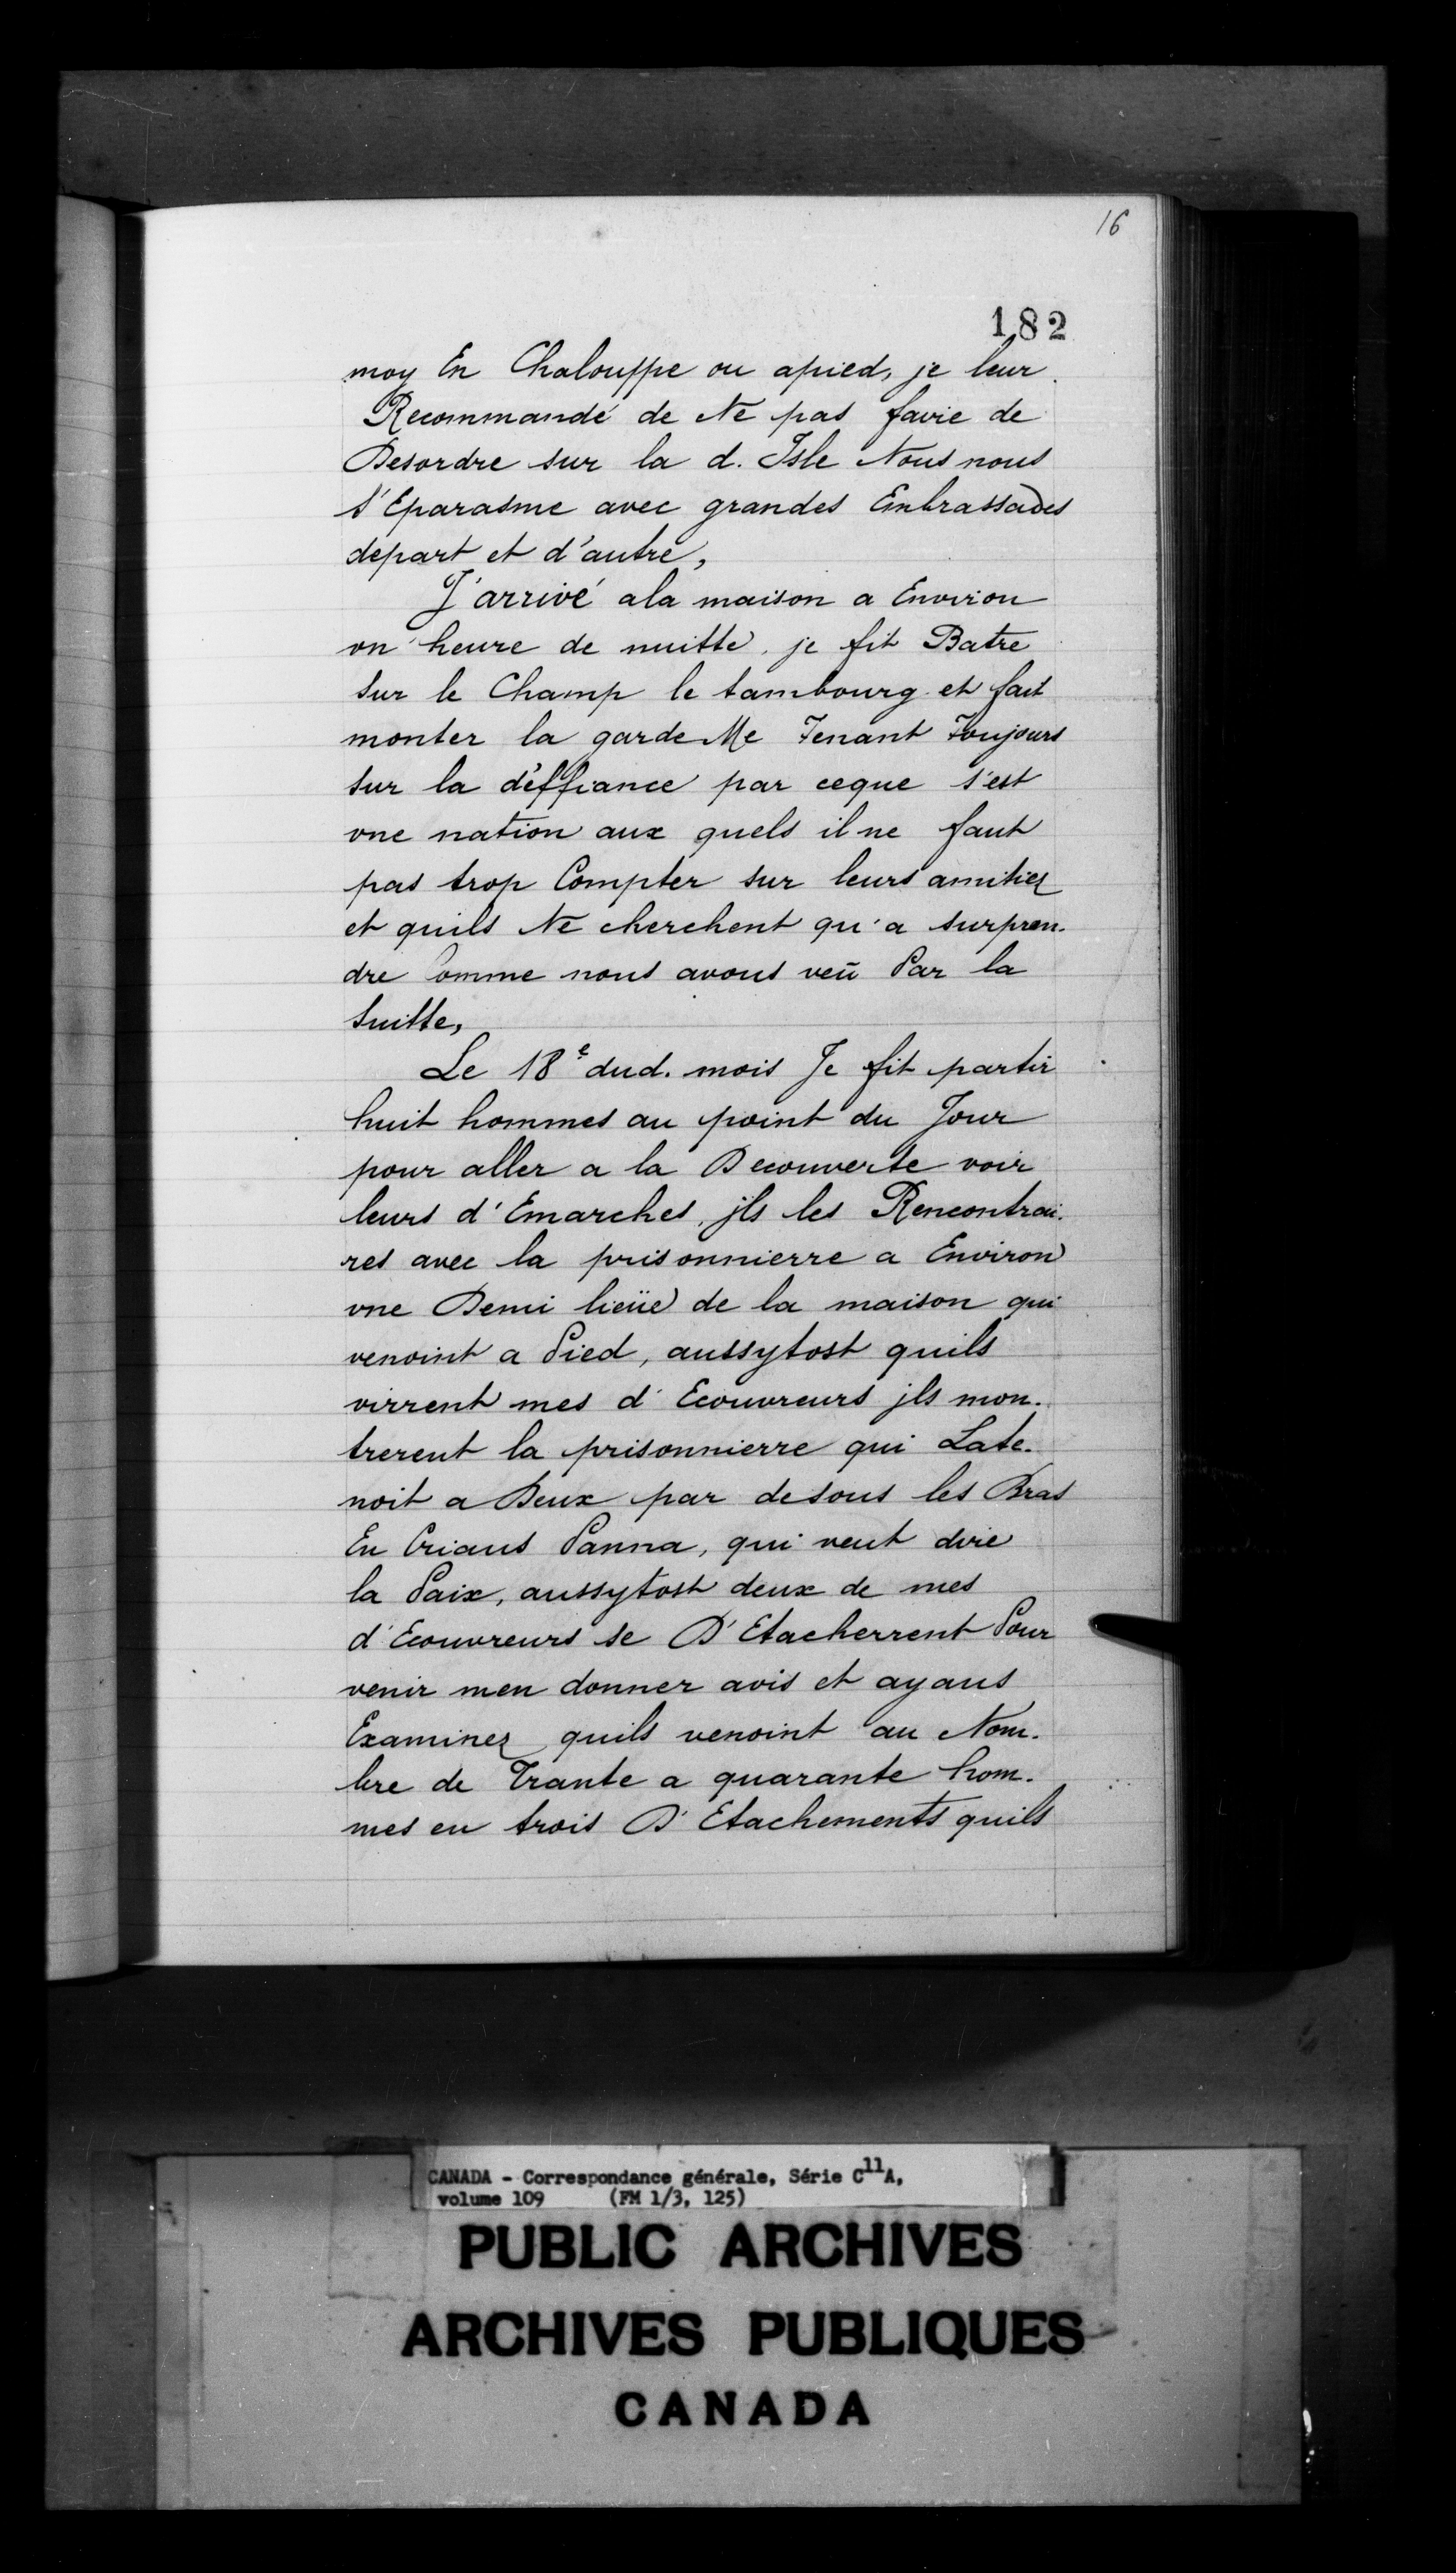 16
182
moy En Chalouppe ou apied, je leur
Recommandé de Ne pas favie de
Desordre sur la d. Isle Nous nous
s'Eparasme avec grandes Enbrassades
depart et d'autre,
J'arrivé ala maison a Environ
vn heure de nuitte, je fit Batre
sur le Champ le tambourg et fait
monter la garde Me Tenant Toujours
sur la déffiance par ceque s'est
vne nation aux quels il ne faut
pas trop Compter sur leurs amitiez
et quils Ne cherchent qu'a surpren-
dre Comme nous avons veü Par la
Suitte,
Le 18e dud. mois Je fit partir
huit hommes au point du Jour
pour aller a la Decouverte voir
leurs d'Emarches, jls les Rencontrai-
res avec la prisonnierre a Environ
vne Demi lieüe de la maison qui
venoint a Pied, aussytost quils
virrent mes d'Ecouvreurs jls mon-
trerent la prisonnierre qui Late-
noit a Deux par desous les Bras
En Crians Panna, qui veut dire
la Paix, aussytost deux de mes
d'Ecouvreurs se D'Etacherrent Pour
venir men donner avis et ayans
Examinez quils venoint au Nom-
bre de Trante a quarante hom-
mes en trois D'Etachements quils
CANADA - Correspondance générale, Série C11A,
volume 109 (FM 1/3, 125)
PUBLIC ARCHIVES
ARCHIVES PUBLIQUES
CANADA